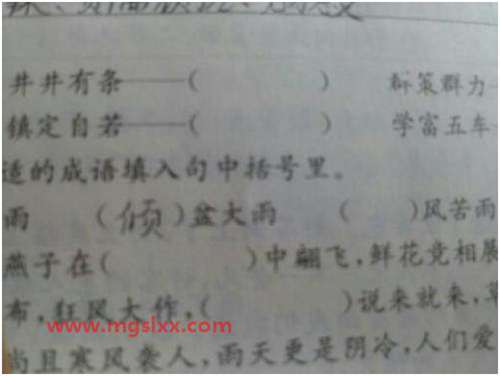 井井有条——(　　　)　群策群力—
镇定自若——(　　　)　学富五车
适的成语填入句中括号里。
雨　(倾)盆大雨　(　　)风苦雨
燕子在(　　　　)中翩飞,鲜花竞相展
布,狂风大作,(　　　　)说来就来,
www.mgslxx.com
尚且寒风袭人,雨天更是阴冷,人们爱